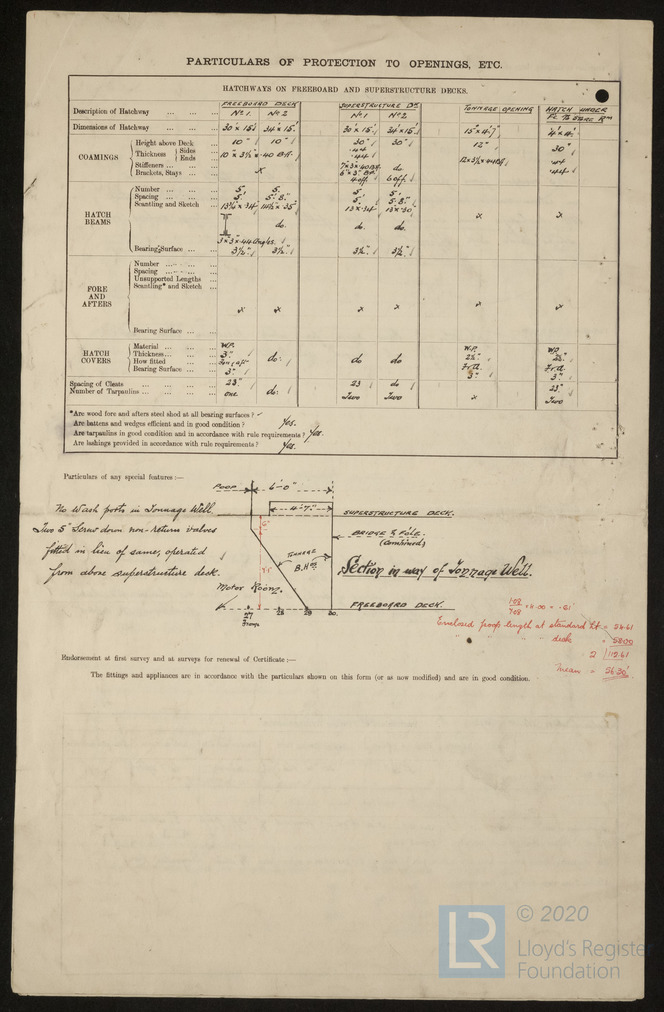 PARTICULARS OF PROTECTION TO OPENINGS, ETC.
HATCHWAYS ON FREEBOARD AND SUPERSTRUCTURE DECKS.
FREEBOARD DECK SUPERSTRUCTURE DK TONNAGE OPENING HATCH UNDER
Description of Hatchway ... ... ... Nº 1. Nº 2 Nº 1 Nº 2
Dimensions of Hatchway ... ... 30' x 15' 34' x 15' 30' x 15' 34' x 15' 15' x 4'7" 4' x 4'
COAMINGS
Height above Deck ... 10" 10" 30" 30" 12" 30"
Thickness Sides .44
Ends 10" x 3½" x .40 .44
Stiffeners ... ... ... do.
Brackets, Stays ... ... x 4 off. 6 off. .44
HATCH BEAMS
Number ... ... ... 5. 5. 5. 5.
Spacing ... ... ... 5' 5'.8" 5' 5'.8"
Scantling and Sketch ... x x
do. do. do.
3" x 3" x .44 angles.
Bearing Surface ... ... 3½" 3½" 3½" 3½"
FORE AND AFTERS
Number ... ... ...
Spacing ... ... ...
Unsupported Lengths ...
Scantling* and Sketch ...
x x x x x x
Bearing Surface ... ...
HATCH COVERS
Material ... ... ... W.P. W.P. W.P.
Thickness ... ... ... 3" 2½" 2½"
How fitted ... ... do. do do F & A F & A
Bearing Surface ... ... 3" 3" 3"
Spacing of Cleats ... ... ... ... 23" 23 do 23"
Number of Tarpaulins ... ... ... one do. Two Two x Two
*Are wood fore and afters steel shod at all bearing surfaces?
Are battens and wedges efficient and in good condition? Yes.
Are tarpaulins in good condition and in accordance with rule requirements? Yes.
Are lashings provided in accordance with rule requirements? Yes.
Particulars of any special features:—
POOP 6'-0"
No Wash ports in Tonnage Well.
4'-7"
SUPERSTRUCTURE DECK.
Two 5" Screw down non-return valves
BRIDGE & F'CLE.
(Combined)
fitted in lieu of same, operated
TONNAGE
B.HD
Section in way of Tonnage Well.
from above superstructure deck.
Motor Room.
FREEBOARD DECK.
27 28 29 30.
Frames
Enclosed poop length at standard ht = 54.61
" " " " deck = 58.00
2 | 112.61
Mean = 56.30'
Endorsement at first survey and at surveys for renewal of Certificate:—
The fittings and appliances are in accordance with the particulars shown on this form (or as now modified) and are in good condition.
LR
© 2020
Lloyd's Register
Foundation